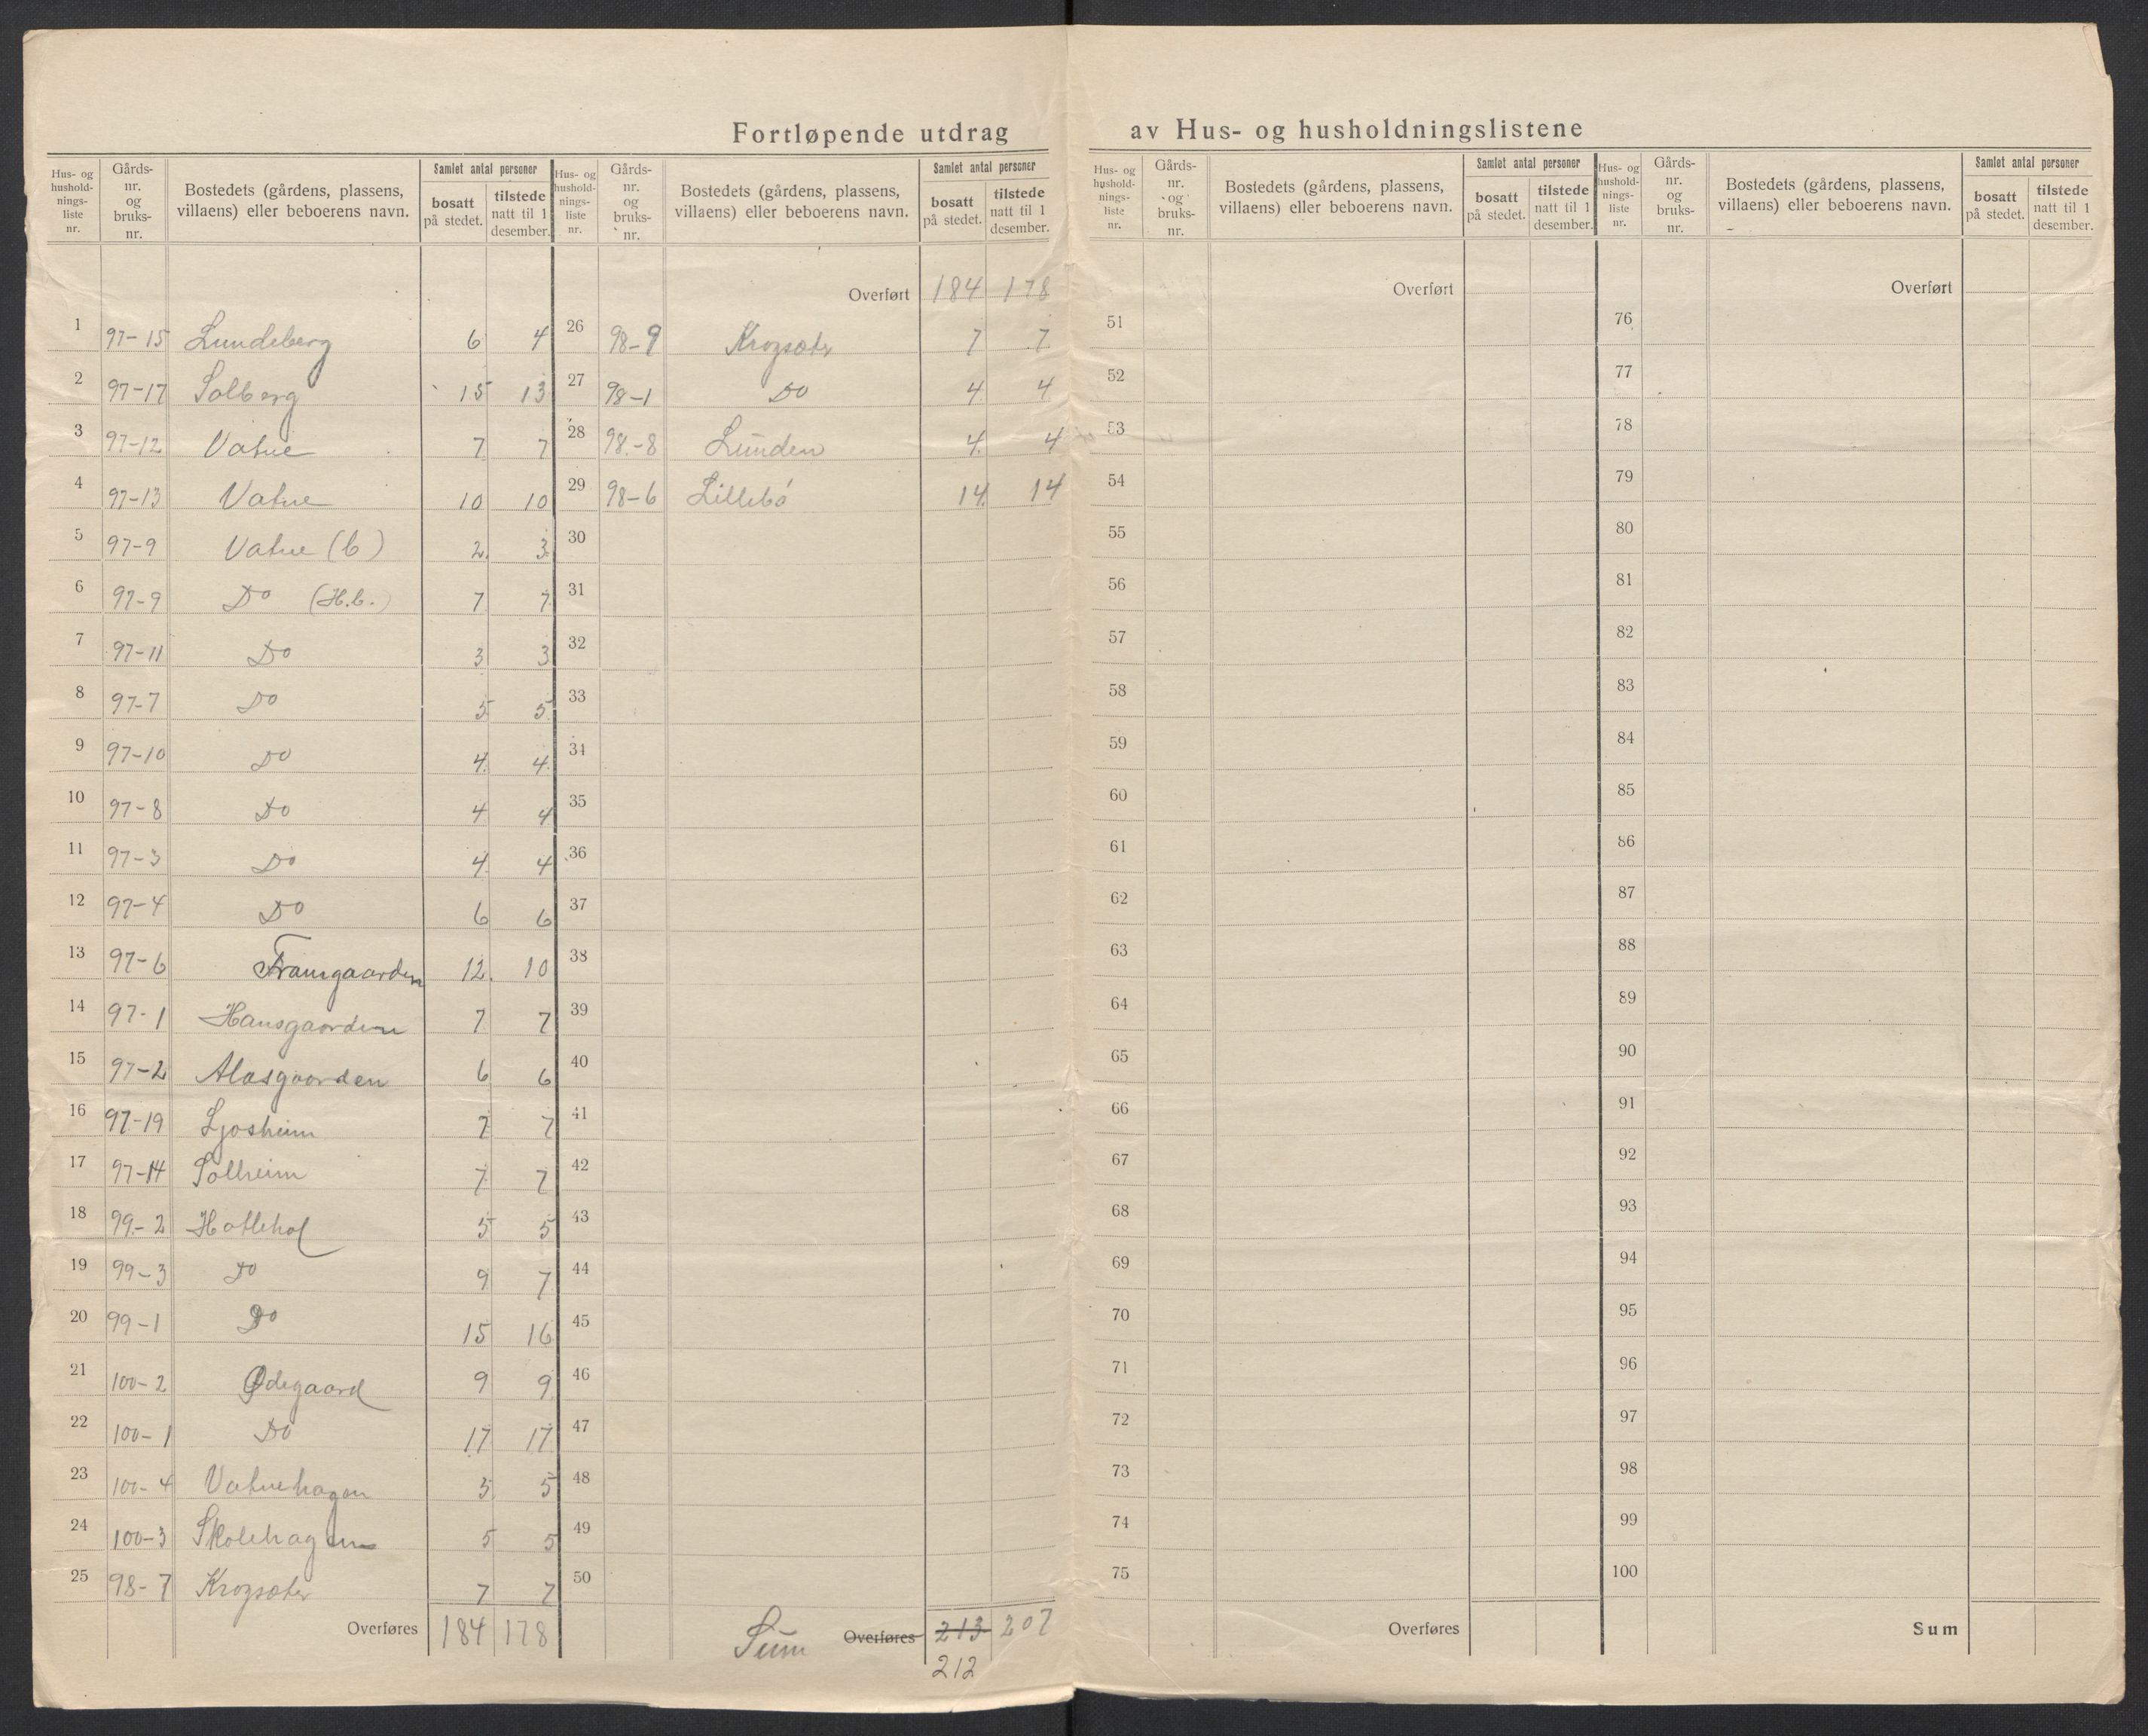 Fortløpende utdrag av Hus- og husholdningslistene
Hus- og hushold- nings- liste nr. | Gårds- nr. og bruks- nr. | Bostedets (gårdens, plassens, villaens) eller beboerens navn. | Samlet antal personer | bosatt på stedet. | tilstede natt til 1 desember.
1 97-15 Lundeberg 6 4
2 97-17 Solberg 15 13
3 97-12 Vatne 7 7
4 97-13 Vatne 10 10
5 97-9 Vatne (b) 2 3
6 97-9 Do (H.b.) 7 7
7 97-11 Do 3 3
8 97-7 Do 5 5
9 97-10 Do 4 4
10 97-8 Do 4 4
11 97-3 Do 4 4
12 97-4 Do 6 6
13 97-6 Framgaarden 12 10
14 97-1 Hansgaarden 7 7
15 97-2 Alasgaarden 6 6
16 97-19 Ljosheim 7 7
17 97-14 Solheim 7 7
18 99-2 Hatlehol 5 5
19 99-3 Do 9 7
20 99-1 Do 15 16
21 100-2 Ødegaard 9 9
22 100-1 Do 17 17
23 100-4 Vatnehagen 5
24 100-3 Skolehagen 5 5
25 98-7 Krogsæter 7 7
Overføres 184 178
Hus- og hushold- nings- liste nr. | Gårds- nr. og bruks- nr. | Bostedets (gårdens, plassens, villaens) eller beboerens navn. | Samlet antal personer | bosatt på stedet. | tilstede natt til 1 desember.
Overført 184 178
26 98-9 Krogsæter 7 7
27 98-1 Do 4 4
28 98-8 Lunden 4 4
29 98-6 Lillebø 14 14
30
31
32
33
34
35
36
37
38
39
40
41
42
43
44
45
46
47
48
49
50
Sum Overføres 213 207
212
Hus- og hushold- nings- liste nr. | Gårds- nr. og bruks- nr. | Bostedets (gårdens, plassens, villaens) eller beboerens navn. | Samlet antal personer | bosatt på stedet. | tilstede natt til 1 desember.
Overført
51
52
53
54
55
56
57
58
59
60
61
62
63
64
65
66
67
68
69
70
71
72
73
74
75
Overføres
Hus- og hushold- nings- liste nr. | Gårds- nr. og bruks- nr. | Bostedets (gårdens, plassens, villaens) eller beboerens navn. | Samlet antal personer | bosatt på stedet. | tilstede natt til 1 desember.
Overført
76
77
78
79
80
81
82
83
84
85
86
87
88
89
90
91
92
93
94
95
96
97
98
99
100
Sum